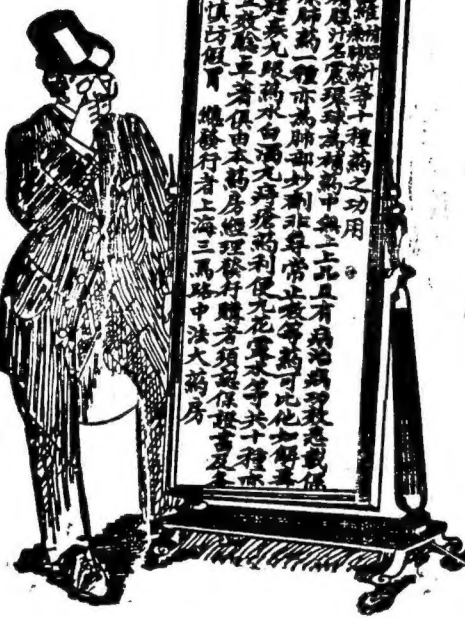 羅補腦汁
療肺藥
等十種藥之功用
腦汁名震環球為補藥中無上上品且有病治病功效悉載保
肺藥一種亦為肺部妙劑非尋常止咳等藥可比他如解毒
疾丸眼藥水白濁丸痔瘡藥利便丸花露水等共十種亦
上效驗卓著俱由本藥房經理發行購者須認保證書及
慎防假冒 總發行者上海三馬路中法大藥房